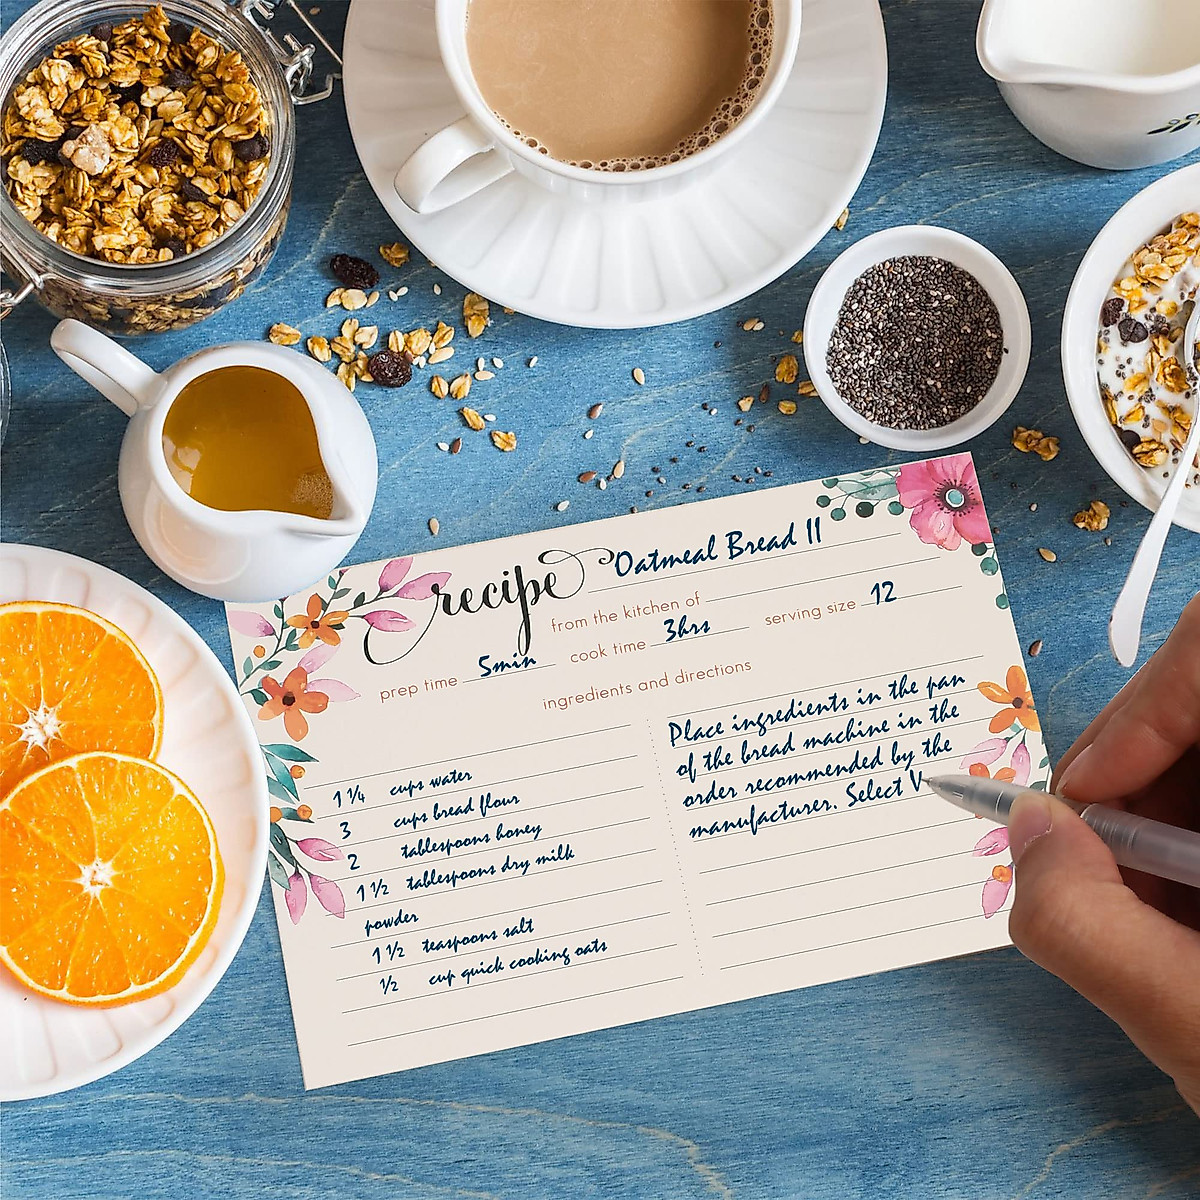 recipe Oatmeal Bread II
from the kitchen of
prep time 5min cook time 3hrs serving size 12
ingredients and directions
1 ¼ cups water
3 cups bread flour
2 tablespoons honey
1 ½ tablespoons dry milk
powder
1 ½ teaspoons salt
½ cup quick cooking oats
Place ingredients in the pan
of the bread machine in the
order recommended by the
manufacturer. Select V